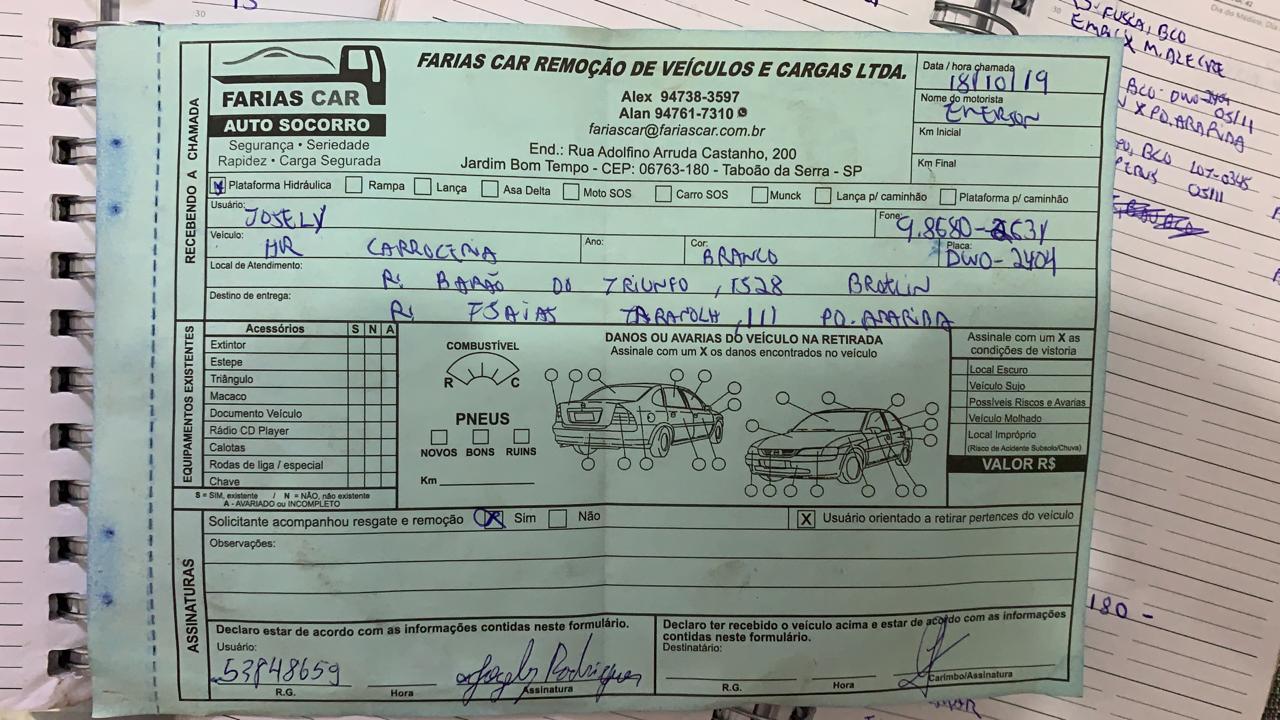 FARIAS CAR
AUTO SOCORRO
Segurança • Seriedade
Rapidez • Carga Segurada
FARIAS CAR REMOÇÃO DE VEÍCULOS E CARGAS LTDA.
Alex 94738-3597
Alan 94761-7310
fariascar@fariascar.com.br
End.: Rua Adolfino Arruda Castanho, 200
Jardim Bom Tempo - CEP: 06763-180 - Taboão da Serra - SP
Data / hora chamada
18/10/19
Nome do motorista
EMERSON
Km Inicial
Km Final
RECEBENDO A CHAMADA
Plataforma Hidráulica Rampa Lança Asa Delta Moto SOS Carro SOS Munck Lança p/ caminhão Plataforma p/ caminhão
Usuário: JOSELY Fone:
Veículo: HR CARROCERIA Ano: Cor: BRANCO Placa: DWO-2404
Local de Atendimento: R: BARÃO DO TRIUNFO, 1528
Destino de entrega: R: 111 PQ. ARARIBA
EQUIPAMENTOS EXISTENTES
Acessórios S N A
Extintor
Estepe
Triângulo
Macaco
Documento Veículo
Rádio CD Player
Calotas
Rodas de liga / especial
Chave
S = SIM, existente / N = NÃO, não existente
A - AVARIADO ou INCOMPLETO
COMBUSTÍVEL
R C
PNEUS
NOVOS BONS RUINS
Km
DANOS OU AVARIAS DO VEÍCULO NA RETIRADA
Assinale com um X os danos encontrados no veículo
Assinale com um X as
condições de vistoria
Local Escuro
Veículo Sujo
Possíveis Riscos e Avarias
Veículo Molhado
Local Impróprio
(Risco de Acidente Subsolo/Chuva)
VALOR R$
Solicitante acompanhou resgate e remoção X Sim Não X Usuário orientado a retirar pertences do veículo
Observações:
ASSINATURAS
Declaro estar de acordo com as informações contidas neste formulário.
Usuário:
53848659 Josely Rodrigues
R.G. Hora Assinatura
Declaro ter recebido o veículo acima e estar de acordo com as informações
contidas neste formulário.
Destinatário:
R.G. Hora Carimbo/Assinatura
FUSCA, BCO
X M. ALEGRE
05/11
X PQ. ARARIBA
05/11
180 -